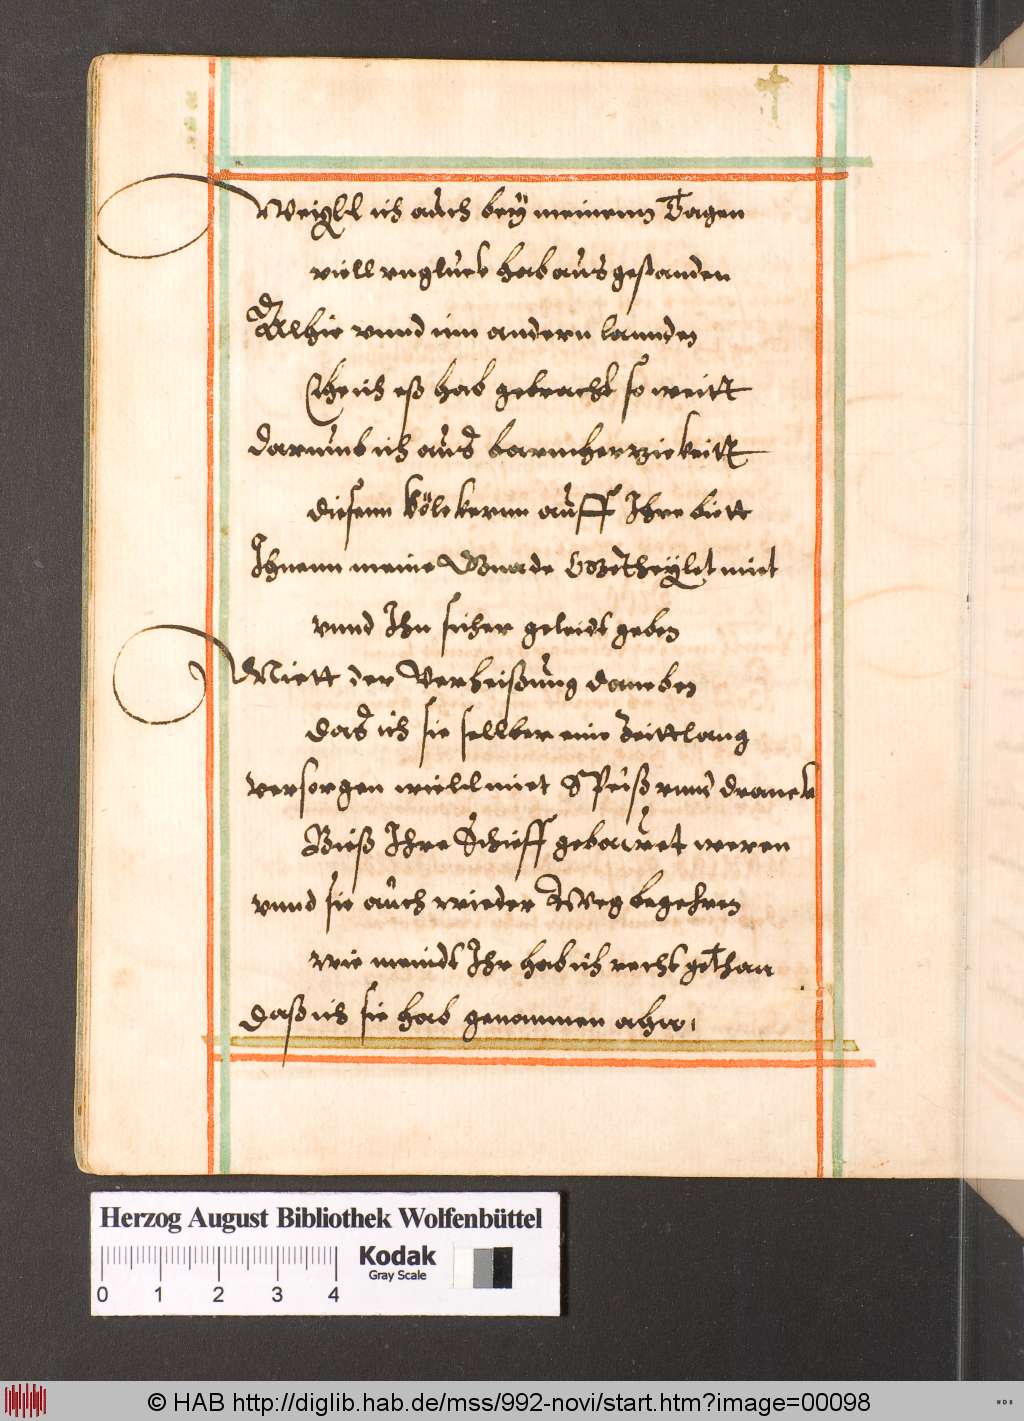 Weigll ich auch bey meinenn Tagen
viell vngluck hab ausgestanden
Alhie vnnd inn andern lannden
Ehe ich eß hab gebracht so weitt
darumb ich aus barmherzickeitt
diesenn Völckernn auff Ihre biett
Ihnenn meine Gnade mittheylet miet
vnnd Ihn sicher geleids geben
Miett der Verheißung daneben
das ich sie sellber eine Zeittlang
versorgen wiell miet Speiß vnnd dranck
Bieß Ihre Schieff gebauwet weren
vnnd sie auch wieder Weg begehren
wie meinds Ihr hab ich recht gethan
daß ich sie hab genommen ahn
Herzog August Bibliothek Wolfenbüttel
Kodak
Gray Scale
0 1 2 3 4
© HAB http://diglib.hab.de/mss/992-novi/start.htm?image=00098